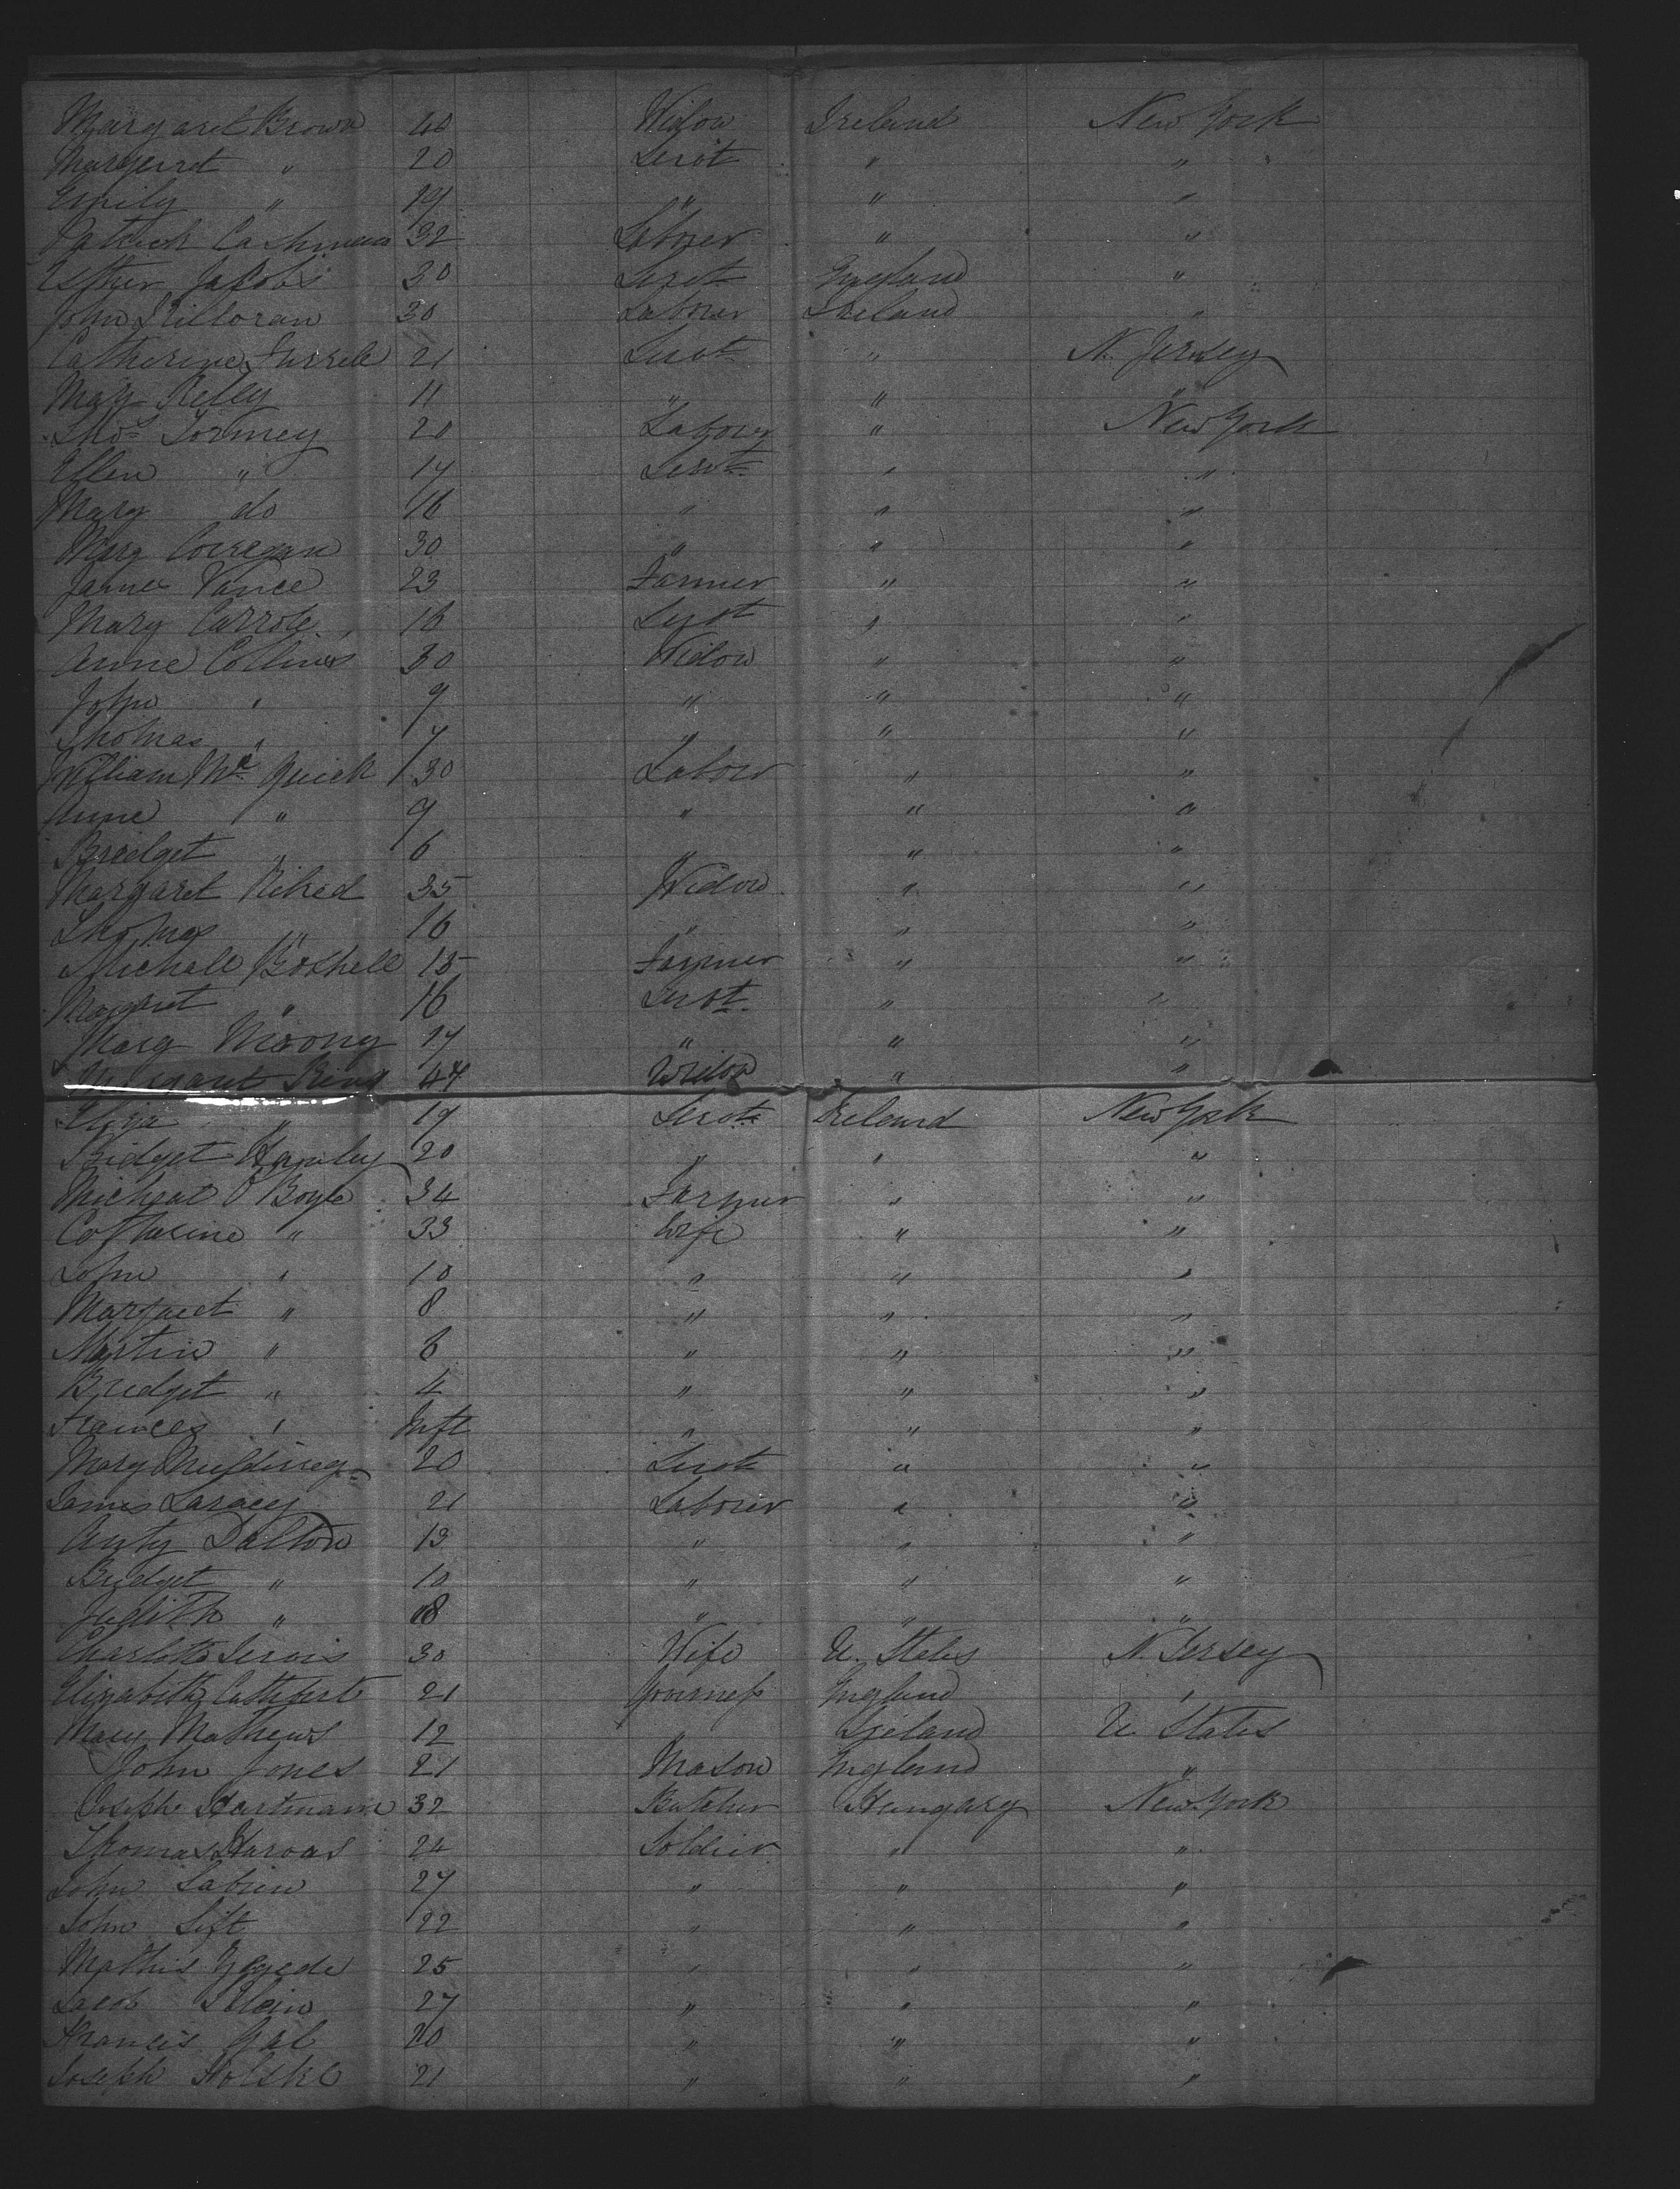 Margaret Brown 40 Widow Ireland New York
Margerret " 20 Servt " "
Emily " 19 " " "
Patrick 32 Laborer " "
Esther Jakobs 30 Servt England "
John Killoran 30 Laborer Ireland "
Catherine 21 Servt " N. Jersey
May Reley 11 " " "
Thos Tormey 20 Laborer " New York
Ellen " 14 Servt " "
Mary do 16 " " "
Mary Corregan 30 " " "
James Vance 23 Farmer " "
Mary Carrole 16 Servt " "
Anne Collines 30 Widow " "
John " 9 " " "
Thomas " 7 " " "
William Mc Quick 30 Labour " "
Anne " 9 " " "
Bredget " 6 " " "
Margaret 35 Widow " "
Thomas " 16 " " "
Michale 15 Farmer " "
Margaret " 16 Servt " "
Mary 17 " " "
Margaret King 47 Widow " "
Eliza " 19 Servt Ireland New York
Bridget Hanley 20 " " "
Micheal O Boyle 34 Farmer " "
Catharine " 33 Wife " "
John " 10 " " "
Margaret " 8 " " "
Martin " 6 " " "
Bridget " 4 " " "
Frances " Inft " " "
Mary 20 Servt " "
James Laracey 21 Laborer " "
Anty Dalton 13 " " "
Bridget " 10 " " "
Judith " 8 " " "
Charlotte Servis 30 Wife U. States N. Jersey
Elizabeth Cuthbert 21 Governess England "
Mary Mathews 12 Ireland U States
John Jones 21 Mason England "
Joseph Hartmann 32 Butcher Hungary New York
Thomas Harvas 24 Soldier " "
John Sabien 27 " " "
John Sift 22 " " "
Mathis 25 " " "
Jacob Klein 27 " " "
Francis Gal 20 " " "
Joseph Holske 21 " " "